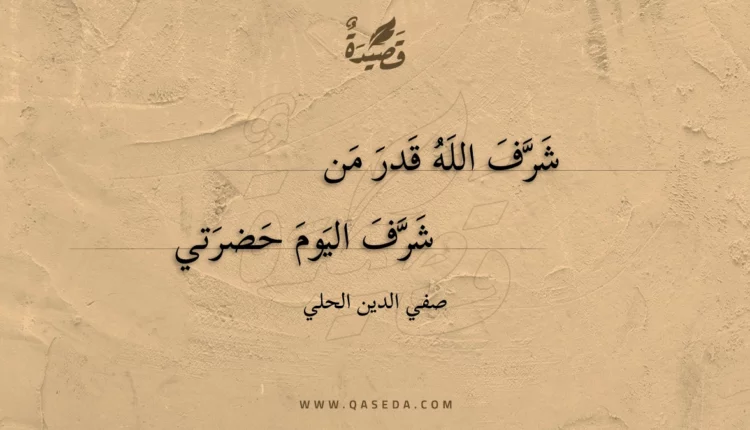 قَصِيْدَةٌ
شَرَّفَ اللَهُ قَدرَ مَن
شَرَّفَ اليَومَ حَضرَتي
صفي الدين الحلي
WWW.QASEDA.COM